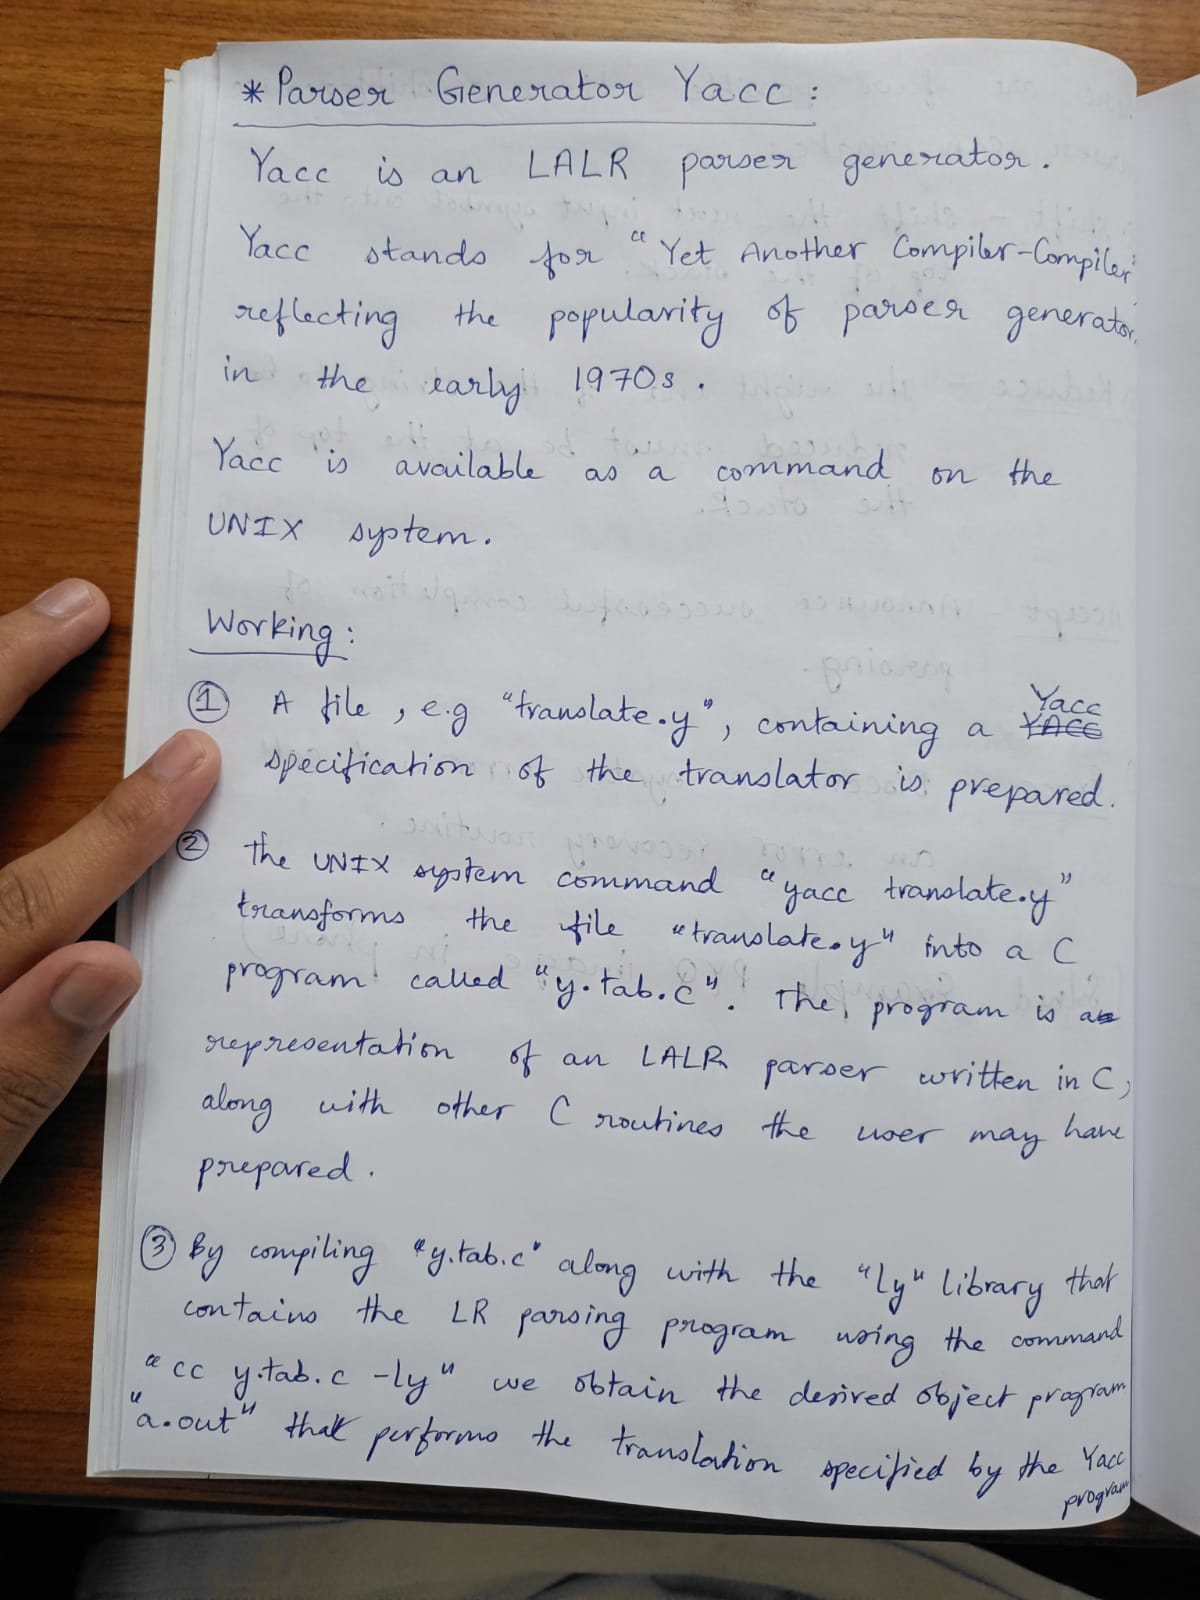 * Parser Generator Yacc :
Yacc is an LALR parser generator.
Yacc stands for "Yet Another Compiler-Compiler"
reflecting the popularity of parser generator
in the early 1970s.
Yacc is available as a command on the
UNIX system.
Working:
① A file, e.g "translate.y", containing a Yacc
specification of the translator is prepared.
② The UNIX system command "yacc translate.y"
transforms the file "translate.y" into a C
program called "y.tab.c". The program is a
representation of an LALR parser written in C,
along with other C routines the user may have
prepared.
③ By compiling "y.tab.c" along with the "ly" library that
contains the LR parsing program using the command
"cc y.tab.c -ly" we obtain the desired object program
"a.out" that performs the translation specified by the Yacc
program